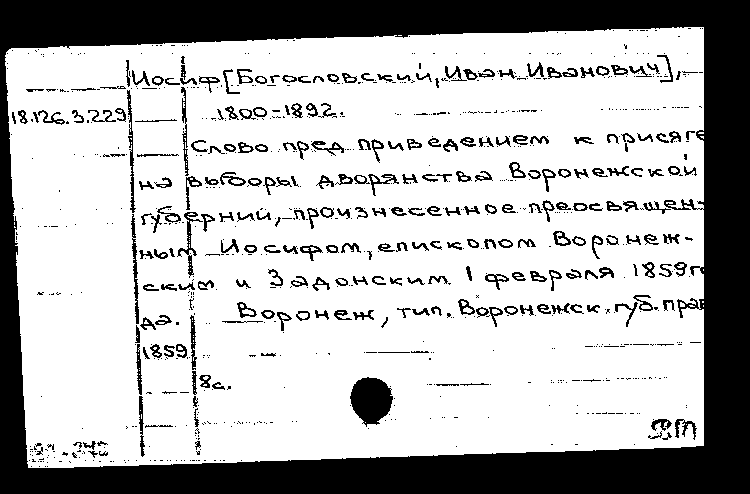 Иосиф [Богословский, Иван Иванович],
18.126.3.229 1800-1892.
Слово пред приведением к присяге
на выборы дворянства Воронежской
губернии, произнесенное преосвящен-
ным Иосифом, епископом Воронеж-
ским и Задонским 1 февраля 1859 го
да. Воронеж, тип. Воронежск. губ. прав
1859
8с.